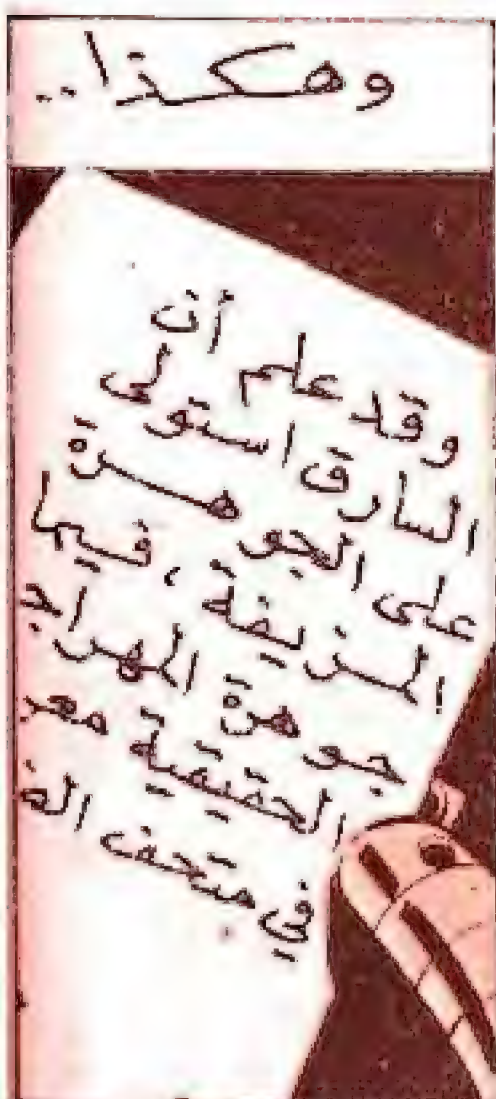 وهكذا..
وقد علم أن
السارق استولى
على الجوهرة
المزيفة، فيما
جوهرة المهراجا
الحقيقية
في متحف